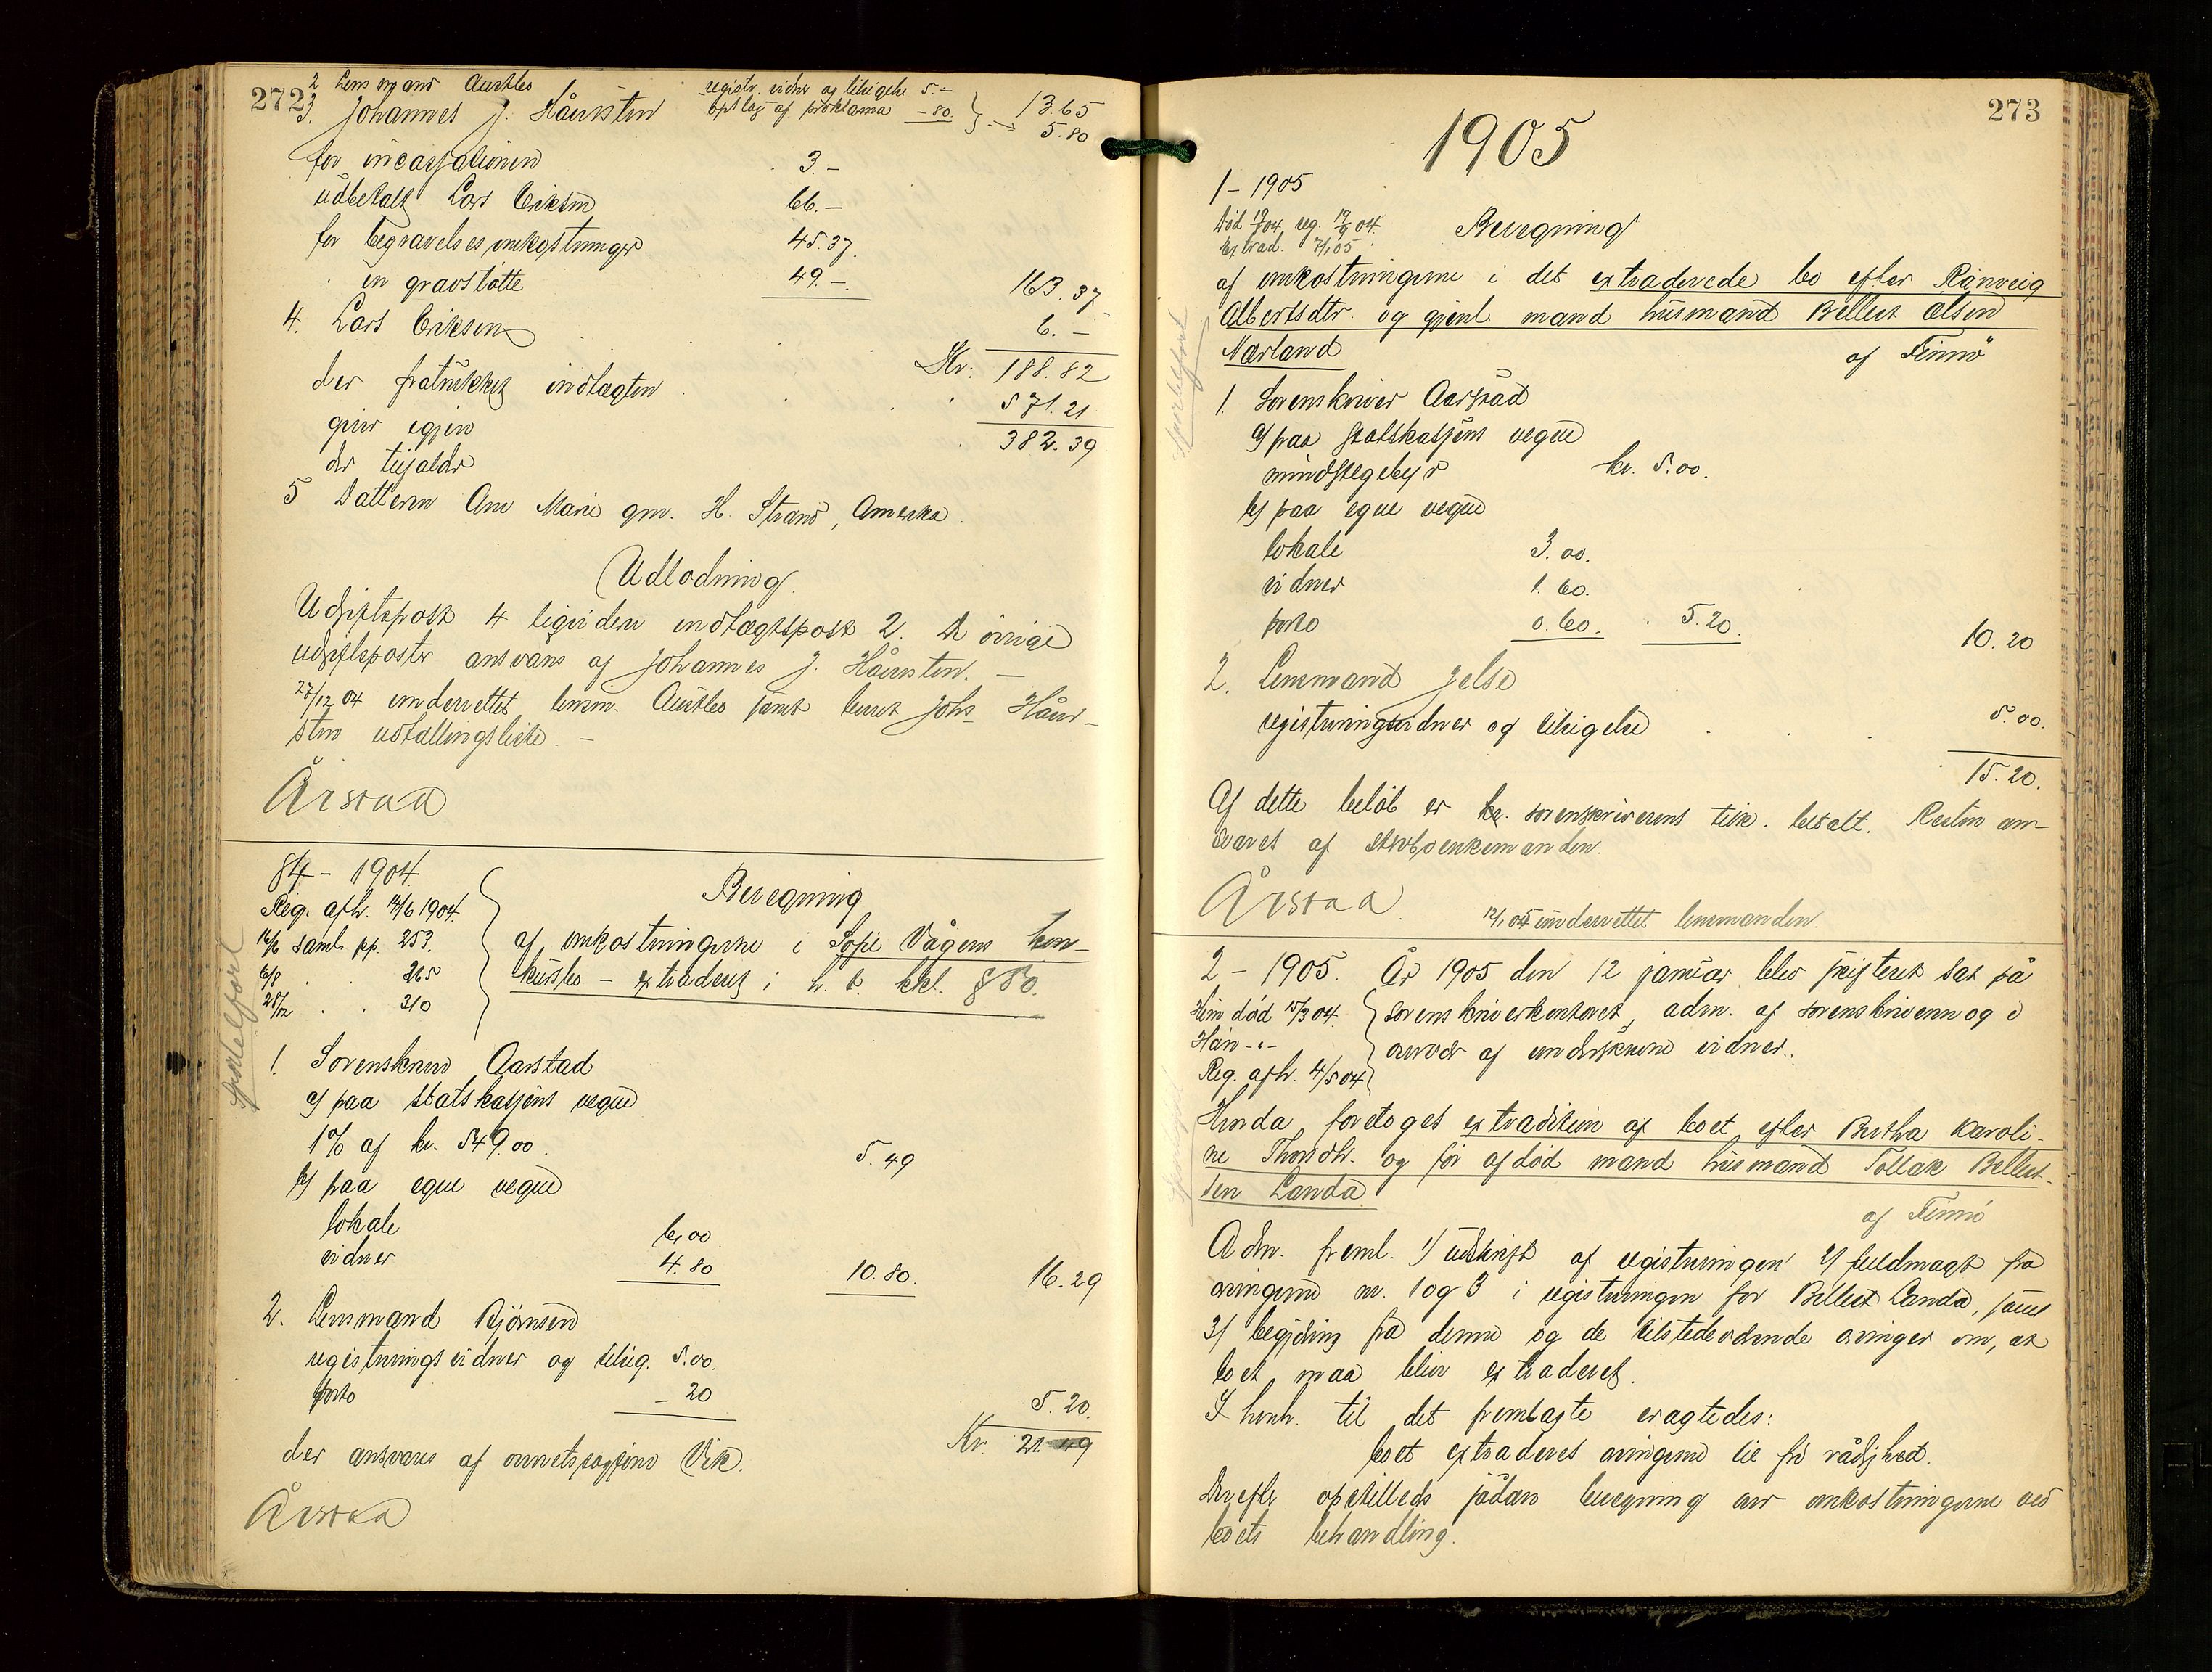 272
2 Lensmand Austbø registr. vidner og tilsigelse 5.–
oplæs af proklama – 80. 13.65
3. Johannes J. Håvisten 5.80
for incassationen 3.–
udbetalt Lars Eriksen 66.–
for begravelsesomkostninger 45.37.
en gravstøtte 49.–. 163.37
4. Lars Eriksen 6.–
Kr: 188.82
der fratrukket indtægten 571.21
giver igjen 382.39
der tilfalder
5 Datteren Ane Marie gm. H. Strand, Amerika.
Udlodning.
Udgiftspost 4 ligviden indtægtspost 2. De øvrige
udgiftsposter ansvares af Johannes J. Håvisten. –
27/12 04 underrettet lensm. Austbø samt
udtallingsliste. –
Årstad
84 – 1904.
Reg. afh. 14/6 1904.
16/6 saml. pp. 253.
6/8 . . 265
28/12 . . 310
Sportelført
Beregning
af omkostningerne i Sofie Vågens kon-
kursbo – extraderet i h. t. kkl. § 80.
1. Sorenskriver Aarstad
a) paa statskassens vegne
1% af kr. 549.00. 5.49
b) paa egne vegne
lokale 6.00
vidner 4.80 10.80. 16.29
2. Lensmand Bjørnsen
registrerings vidner og tilsig. 5.00.
porto – 20 5.20.
Kr. 21.49
der ansvares af overretssagfører Vik.
Årstad
273
1905
1 – 1905
Extrad. 7/1 05.
Sportelført
Beregning
af omkostningerne i det extraderede bo efter Rånveig
Albertsdtr. og gjenl. mand husmand Bellest Olsen
Nærland af Finnø
1. Sorenskriver Aarstad
a) paa statskassens vegne
mindstegebyr kr. 5.00.
b) paa egne vegne
lokale 3.00.
vidner 1.60.
porto 0.60. 5.20. 10.20
2. Lensmand Jelsø
registreringsvidner og tilsigelse 5.00.
15.20.
Af dette beløb er kr. sorenskriverens tilk. betalt. Resten an-
svares af sterboenkemanden.
Årstad.
12/1 05 underrettet lensmanden.
2 – 1905. År 1905 den 12 januar blev skifteret sat på
sorenskriverkontoret, adm. af sorenskriveren og i
overvær af underskrevne vidner.
Hun død 15/3 04.
Han – " –
Reg. afh. 4/5 04
Hvorda foretoges extradition af boet efter Bertha Karoli-
ne Thorsdtr. og før afdød mand husmand Tollak Bellest-
sen Landa
af Finnø
Adm. freml. 1) udskrift af registreringen 2) fuldmagt fra
arvingerne nr. 1 og 3 i registreringen for Bellest Landa, samt
3) begjæring fra denne og de tilstedeværende arvinger om, at
boet maa blive extraderet.
I henh. til det fremlagte eragtedes:
boet extraderes arvingerne til fri rådighed.
Derefter opstilledes sådan beregning over omkostningerne ved
boets behandling.